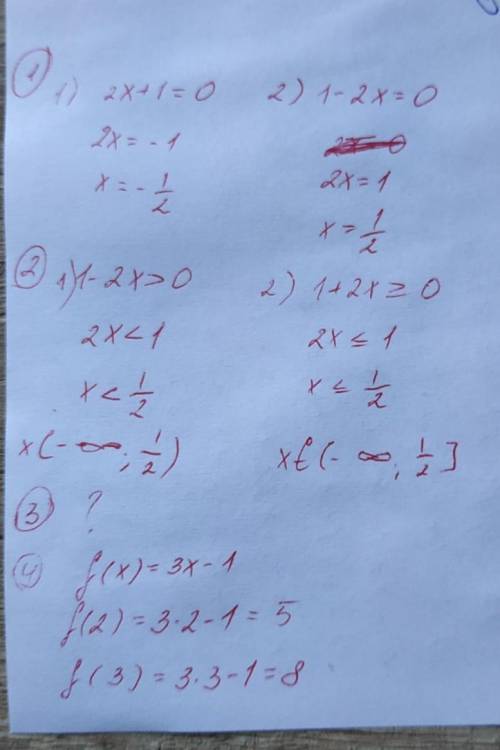 ① 1) 2x+1=0 2) 1-2x=0
2x=-1
x=-1/2 2x=1
x=1/2
② 1) 1-2x>0 2) 1+2x≥0
2x<1 2x≤1
x<1/2 x≤1/2
x(-∞;1/2) x∈(-∞;1/2]
③ ?
④ f(x)=3x-1
f(2)=3·2-1=5
f(3)=3·3-1=8